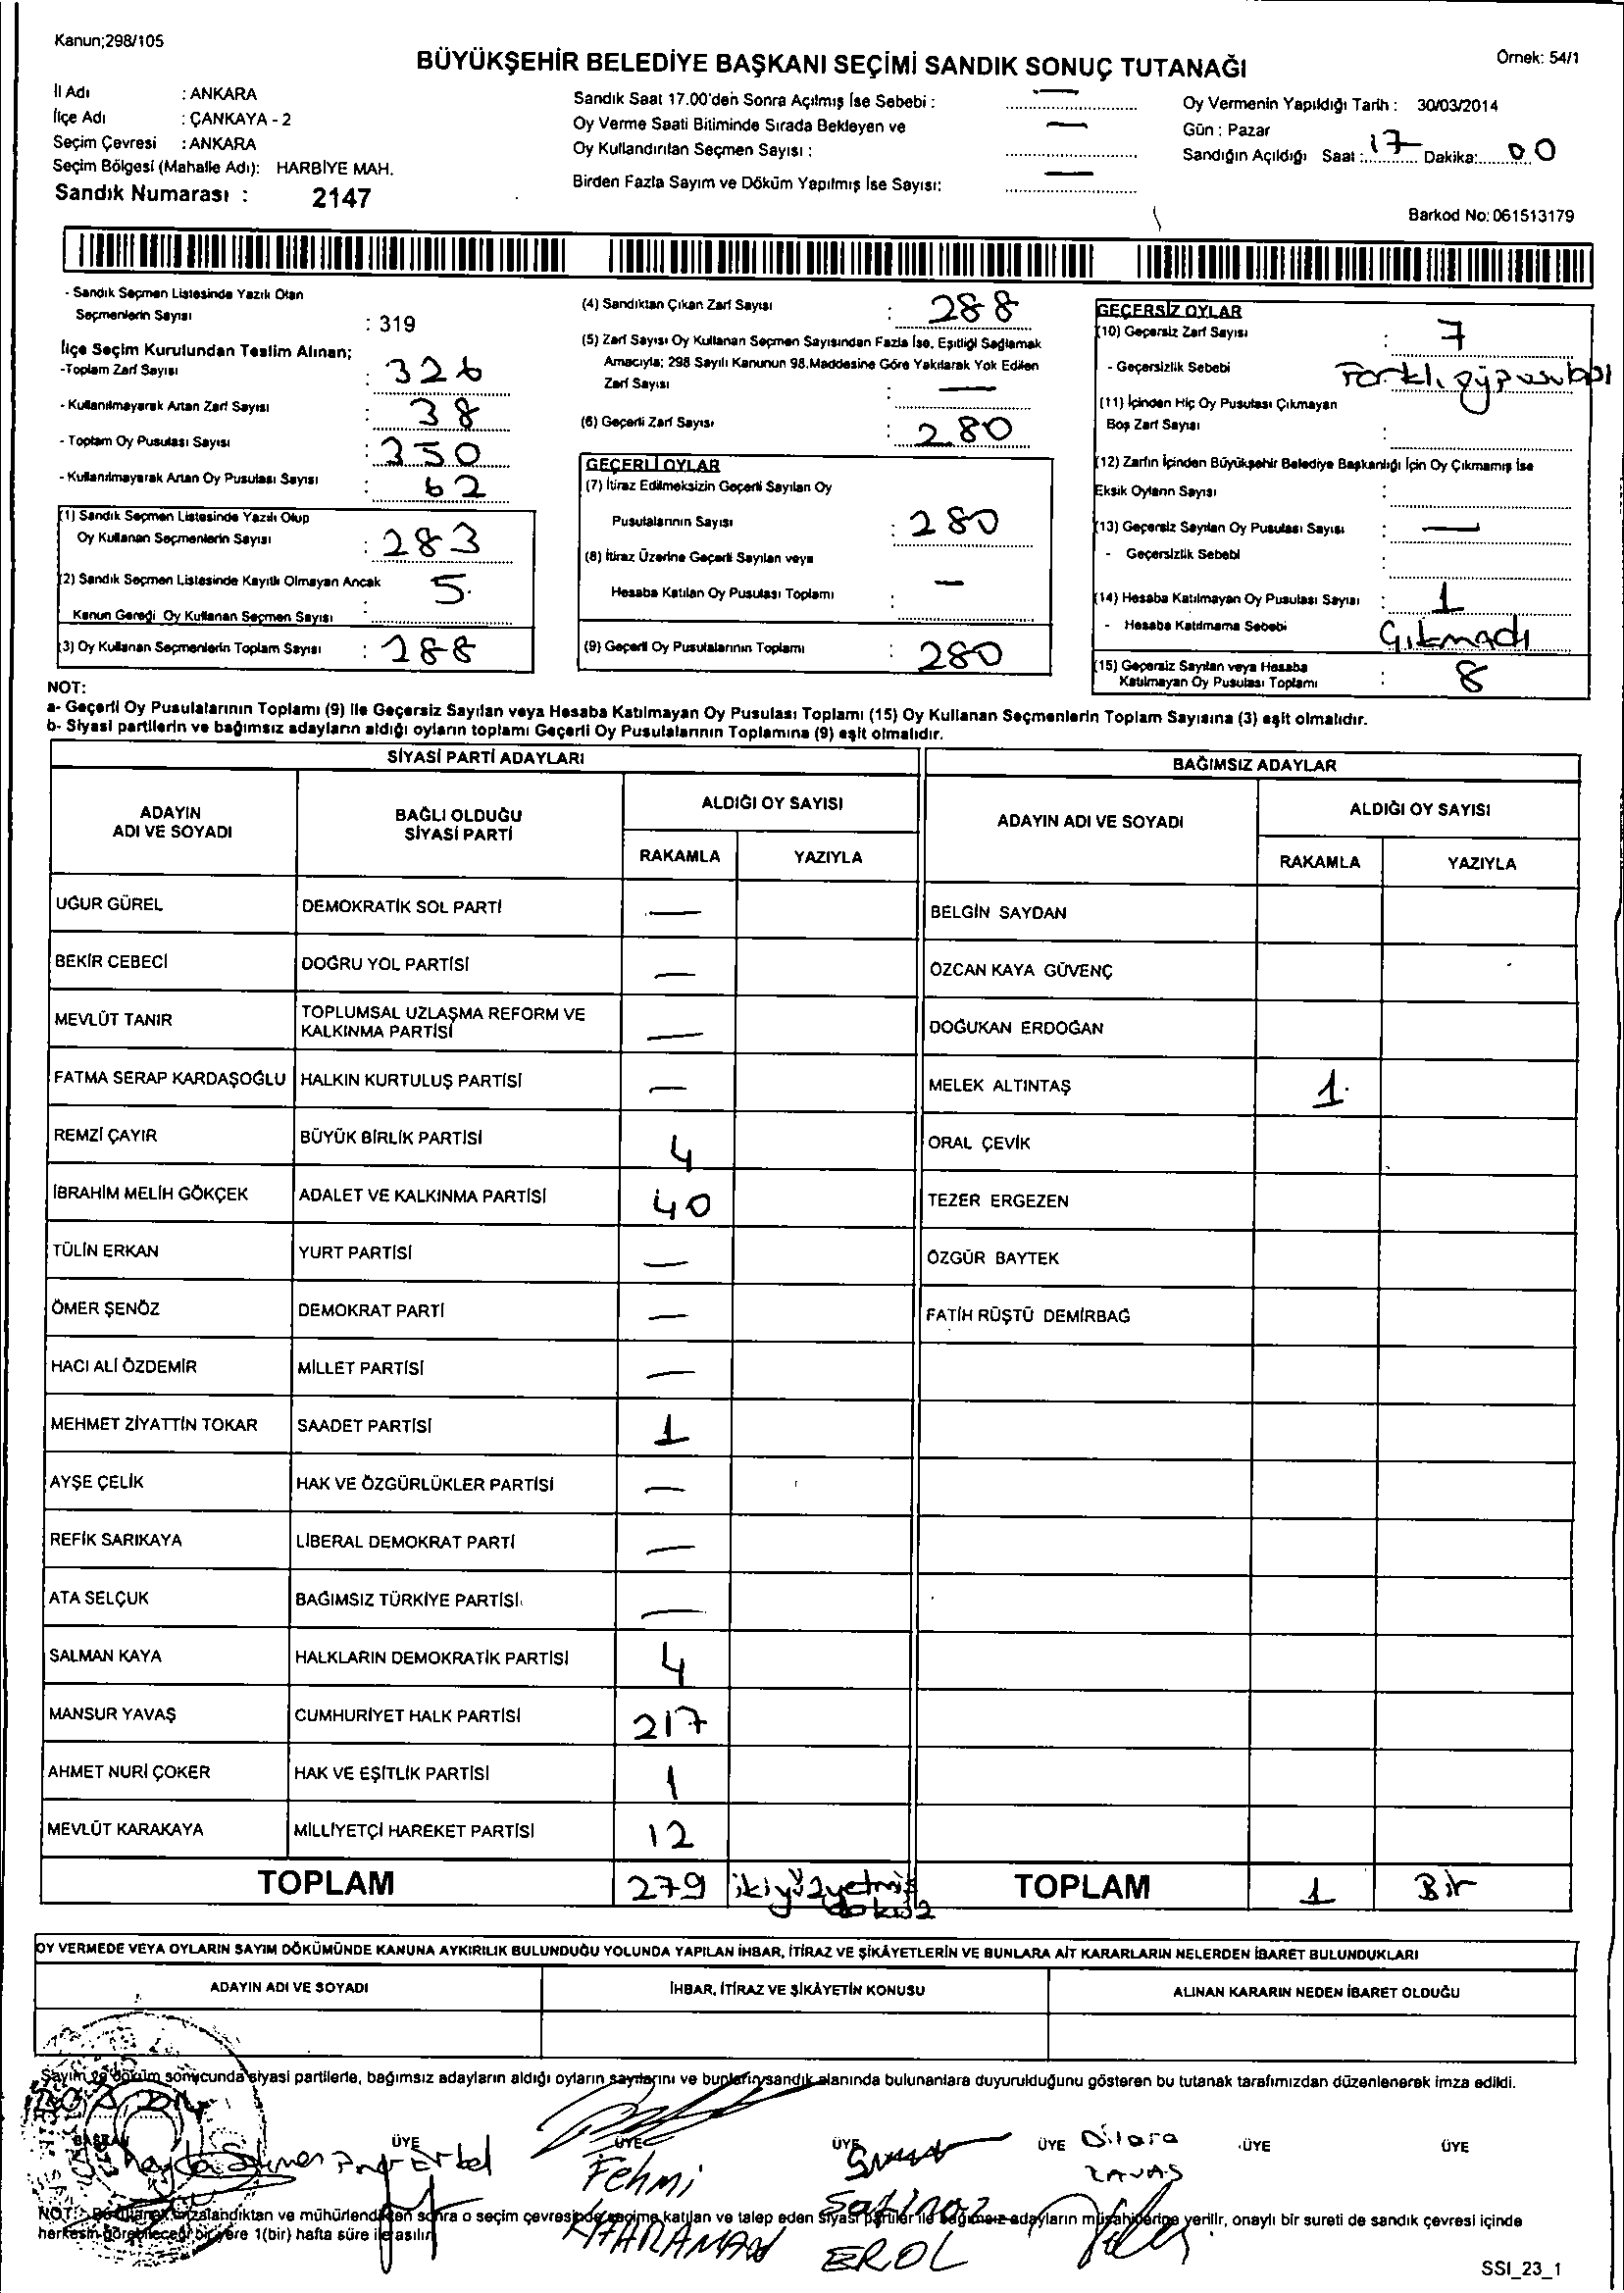 Kanun;298/105
Örnek: 54/1
BÜYÜKŞEHİR BELEDİYE BAŞKANI SEÇİMİ SANDIK SONUÇ TUTANAĞI
İl Adı : ANKARA
İlçe Adı : ÇANKAYA - 2
Seçim Çevresi : ANKARA
Seçim Bölgesi (Mahalle Adı): HARBİYE MAH.
Sandık Numarası : 2147
Sandık Saat 17.00'den Sonra Açılmış İse Sebebi : —
Oy Verme Saati Bitiminde Sırada Bekleyen ve
Oy Kullandırılan Seçmen Sayısı : —
Birden Fazla Sayım ve Döküm Yapılmış İse Sayısı: —
Oy Vermenin Yapıldığı Tarih : 30/03/2014
Gün : Pazar
Sandığın Açıldığı Saat : 17 Dakika: 00
Barkod No: 061513179
- Sandık Seçmen Listesinde Yazılı Olan
Seçmenlerin Sayısı : 319
İlçe Seçim Kurulundan Teslim Alınan;
-Toplam Zarf Sayısı : 326
- Kullanılmayarak Artan Zarf Sayısı : 38
- Toplam Oy Pusulası Sayısı : 350
- Kullanılmayarak Artan Oy Pusulası Sayısı : 62
(1) Sandık Seçmen Listesinde Yazılı Olup
Oy Kullanan Seçmenlerin Sayısı : 283
(2) Sandık Seçmen Listesinde Kayıtlı Olmayan Ancak
Kanun Gereği Oy Kullanan Seçmen Sayısı : 5
(3) Oy Kullanan Seçmenlerin Toplam Sayısı : 288
(4) Sandıktan Çıkan Zarf Sayısı : 288
(5) Zarf Sayısı Oy Kullanan Seçmen Sayısından Fazla İse, Eşitliği Sağlamak
Amacıyla; 298 Sayılı Kanunun 98.Maddesine Göre Yakılarak Yok Edilen
Zarf Sayısı : —
(6) Geçerli Zarf Sayısı : 280
GEÇERLİ OYLAR
(7) İtiraz Edilmeksizin Geçerli Sayılan Oy
Pusulalarının Sayısı : 280
(8) İtiraz Üzerine Geçerli Sayılan veya
Hesaba Katılan Oy Pusulası Toplamı : —
(9) Geçerli Oy Pusulalarının Toplamı : 280
GEÇERSİZ OYLAR
(10) Geçersiz Zarf Sayısı : 7
- Geçersizlik Sebebi : Farklı oy pusulası
(11) İçinden Hiç Oy Pusulası Çıkmayan
Boş Zarf Sayısı :
(12) Zarfın İçinden Büyükşehir Belediye Başkanlığı İçin Oy Çıkmamış İse
Eksik Oyların Sayısı :
(13) Geçersiz Sayılan Oy Pusulası Sayısı : —
- Geçersizlik Sebebi :
(14) Hesaba Katılmayan Oy Pusulası Sayısı : 1
- Hesaba Katılmama Sebebi Çıkmadı
(15) Geçersiz Sayılan veya Hesaba
Katılmayan Oy Pusulası Toplamı : 8
NOT:
a- Geçerli Oy Pusulalarının Toplamı (9) ile Geçersiz Sayılan veya Hesaba Katılmayan Oy Pusulası Toplamı (15) Oy Kullanan Seçmenlerin Toplam Sayısına (3) eşit olmalıdır.
b- Siyasi partilerin ve bağımsız adayların aldığı oyların toplamı Geçerli Oy Pusulalarının Toplamına (9) eşit olmalıdır.
SİYASİ PARTİ ADAYLARI
ADAYIN ADI VE SOYADI
BAĞLI OLDUĞU SİYASİ PARTİ
ALDIĞI OY SAYISI
RAKAMLA YAZIYLA
UĞUR GÜREL DEMOKRATİK SOL PARTİ —
BEKİR CEBECİ DOĞRU YOL PARTİSİ —
MEVLÜT TANIR TOPLUMSAL UZLAŞMA REFORM VE
KALKINMA PARTİSİ —
FATMA SERAP KARDAŞOĞLU HALKIN KURTULUŞ PARTİSİ —
REMZİ ÇAYIR BÜYÜK BİRLİK PARTİSİ 4
İBRAHİM MELİH GÖKÇEK ADALET VE KALKINMA PARTİSİ 40
TÜLİN ERKAN YURT PARTİSİ —
ÖMER ŞENÖZ DEMOKRAT PARTİ —
HACI ALİ ÖZDEMİR MİLLET PARTİSİ —
MEHMET ZİYATTİN TOKAR SAADET PARTİSİ 1
AYŞE ÇELİK HAK VE ÖZGÜRLÜKLER PARTİSİ —
REFİK SARIKAYA LİBERAL DEMOKRAT PARTİ —
ATA SELÇUK BAĞIMSIZ TÜRKİYE PARTİSİ —
SALMAN KAYA HALKLARIN DEMOKRATİK PARTİSİ 4
MANSUR YAVAŞ CUMHURİYET HALK PARTİSİ 217
AHMET NURİ ÇOKER HAK VE EŞİTLİK PARTİSİ 1
MEVLÜT KARAKAYA MİLLİYETÇİ HAREKET PARTİSİ 12
TOPLAM 279 ikiyüzyetmiş
dokuz
BAĞIMSIZ ADAYLAR
ADAYIN ADI VE SOYADI
ALDIĞI OY SAYISI
RAKAMLA YAZIYLA
BELGİN SAYDAN
ÖZCAN KAYA GÜVENÇ
DOĞUKAN ERDOĞAN
MELEK ALTINTAŞ 1
ORAL ÇEVİK
TEZER ERGEZEN
ÖZGÜR BAYTEK
FATİH RÜŞTÜ DEMİRBAĞ
TOPLAM 1 Bir
OY VERMEDE VEYA OYLARIN SAYIM DÖKÜMÜNDE KANUNA AYKIRILIK BULUNDUĞU YOLUNDA YAPILAN İHBAR, İTİRAZ VE ŞİKÂYETLERİN VE BUNLARA AİT KARARLARIN NELERDEN İBARET BULUNDUKLARI
ADAYIN ADI VE SOYADI
İHBAR, İTİRAZ VE ŞİKÂYETİN KONUSU
ALINAN KARARIN NEDEN İBARET OLDUĞU
Sayım ve döküm sonucunda siyasi partilerle, bağımsız adayların aldığı oyların sayılarını ve bunların sandık alanında bulunanlara duyurulduğunu gösteren bu tutanak tarafımızdan düzenlenerek imza edildi.
BAŞKAN ÜYE ÜYE ÜYE ÜYE ÜYE ÜYE
Fehmi
KAHRAMAN
EROL
Dilara
YAVAŞ
NOT: Bu tutanak imzalandıktan ve mühürlendikten sonra o seçim çevresinde seçime katılan ve talep eden siyasi partiler ile bağımsız adayların müşahitlerine verilir, onaylı bir sureti de sandık çevresi içinde
herkesin görebileceği bir yere 1(bir) hafta süre ile asılır.
SSI_23_1